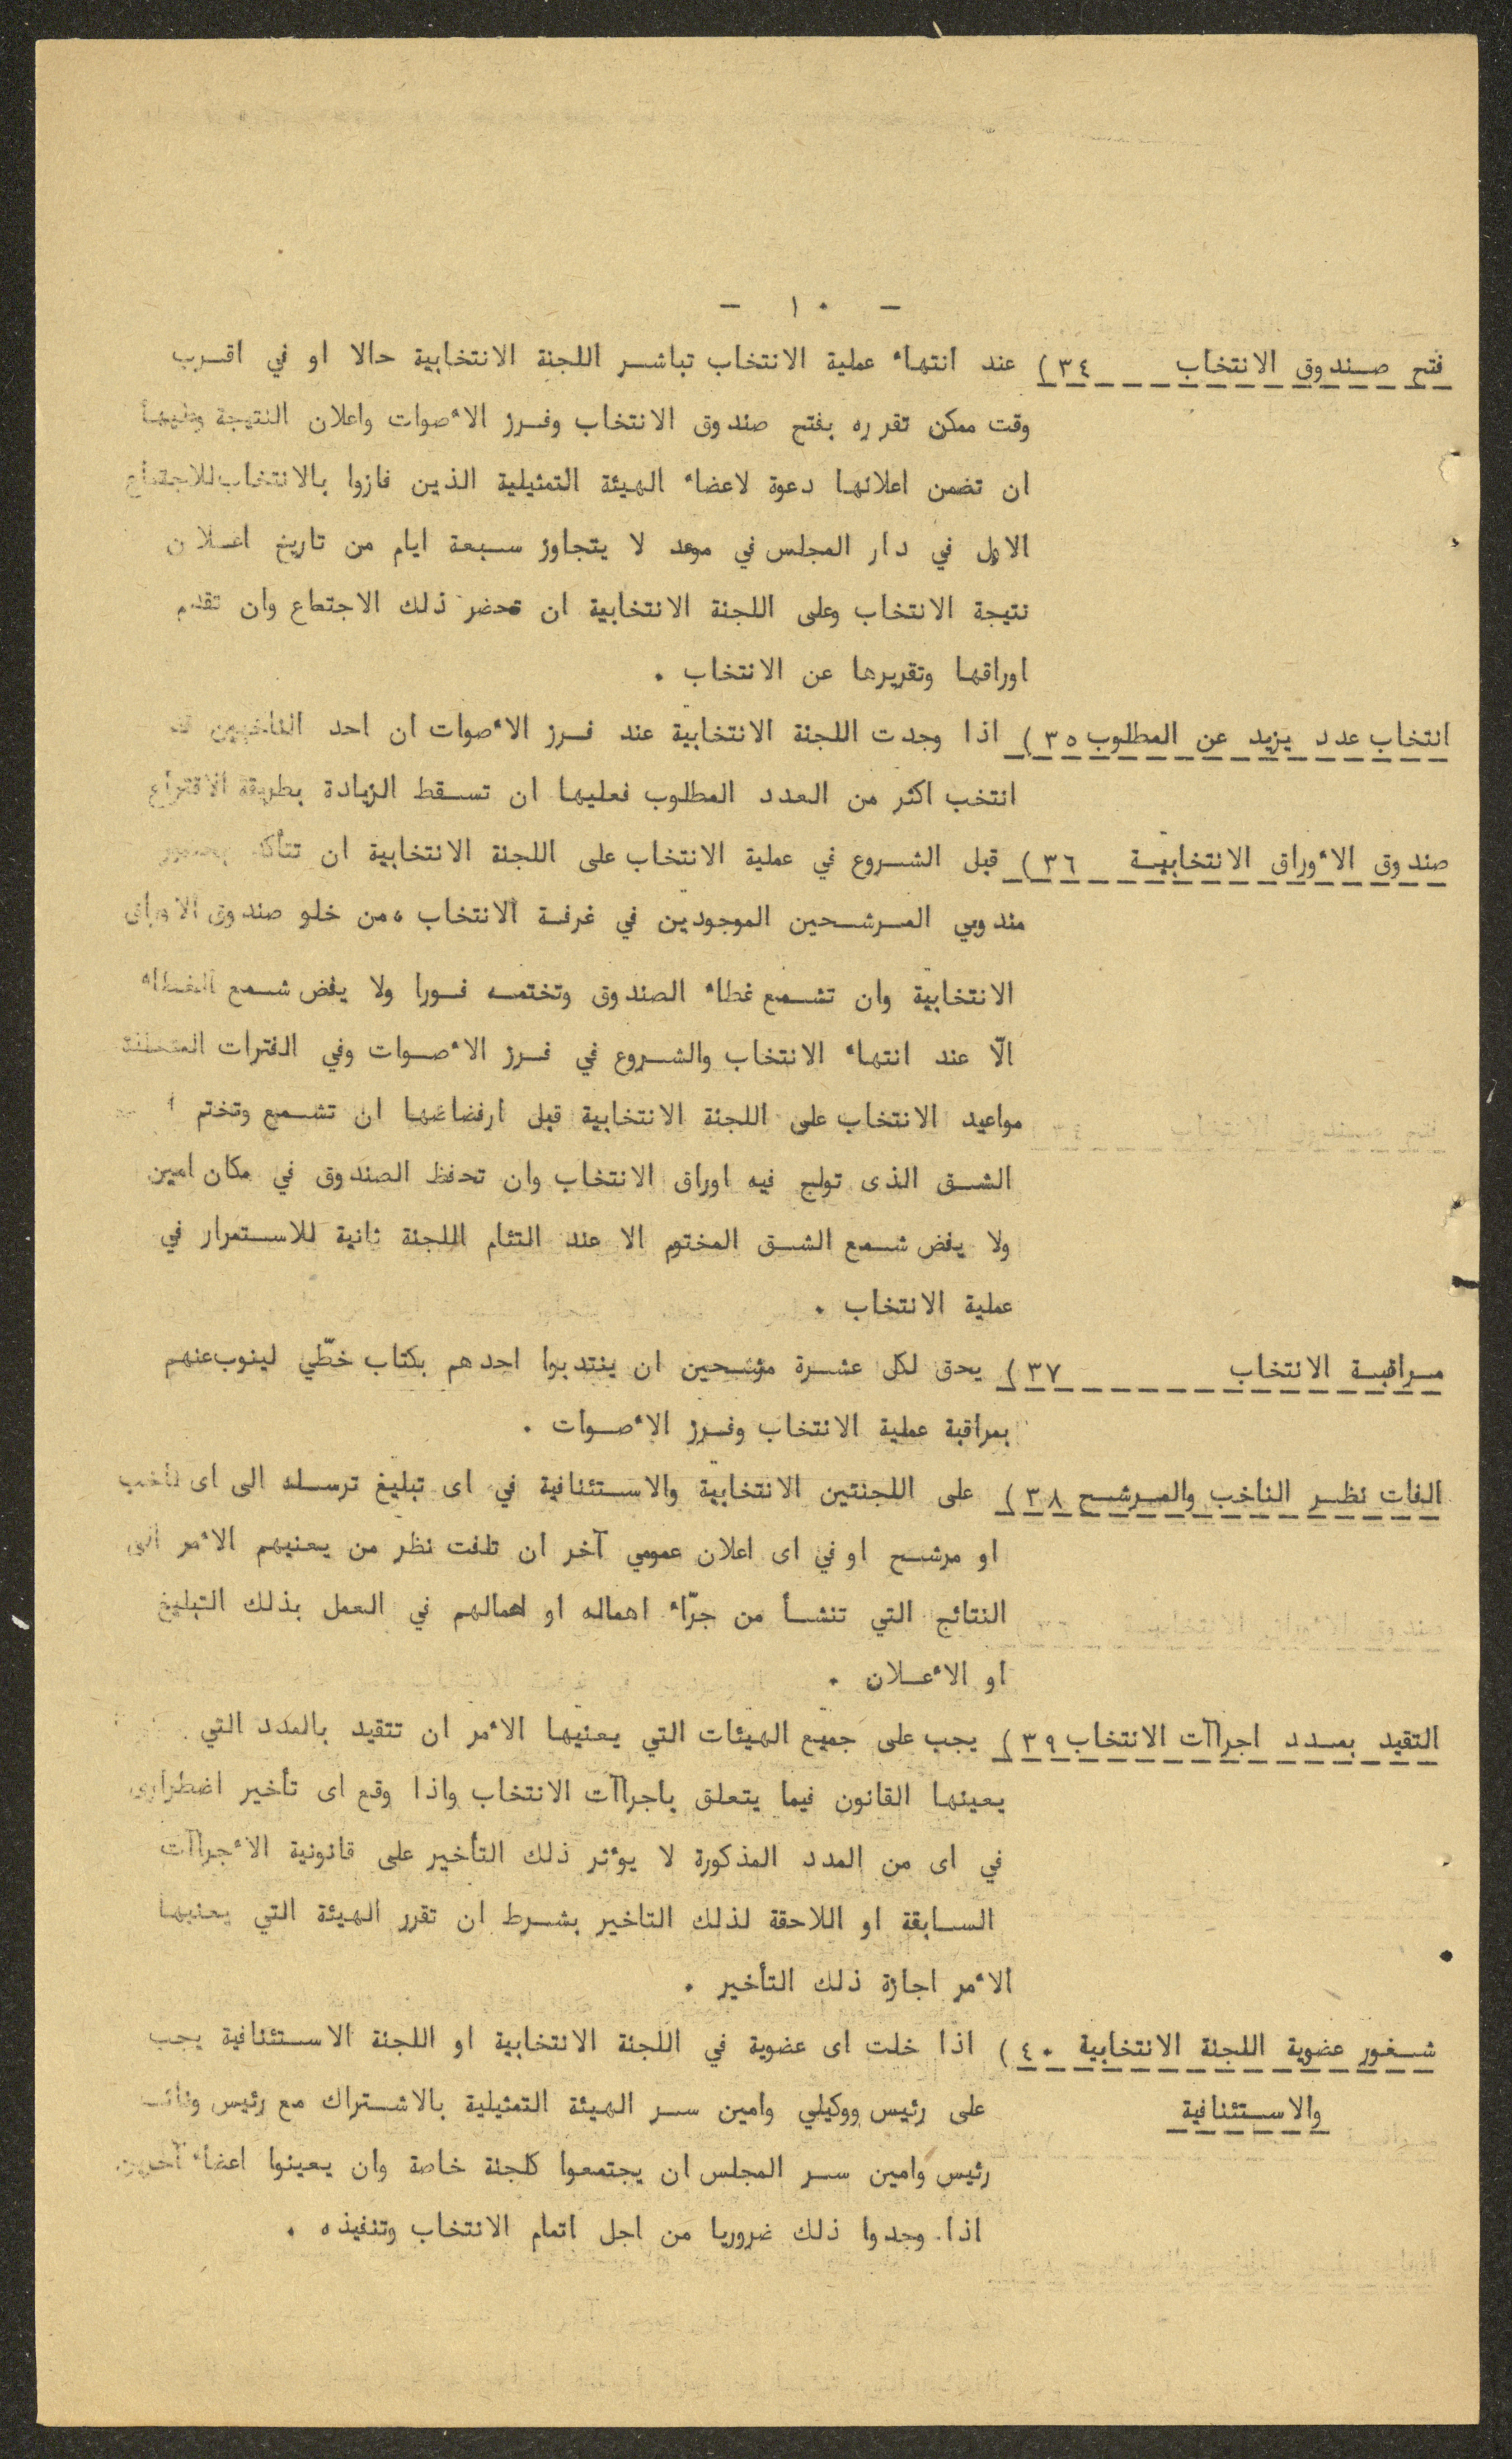 - ١٠ -
فتح صندوق الانتخاب ٣٤) عند انتهاء عملية الانتخاب تباشر اللجنة الانتخابية حالا او في اقرب
وقت ممكن تقرره بفتح صندوق الانتخاب وفرز الأصوات واعلان النتيجة وعليها
ان تضمن اعلانها دعوة لاعضاء الهيئة التمثيلية الذين فازوا بالانتخاب للاجتماع
الاول في دار المجلس في موعد لا يتجاوز سبعة ايام من تاريخ اعلان
نتيجة الانتخاب وعلى اللجنة الانتخابية ان تحضر ذلك الاجتماع وان تقدم
اوراقها وتقريرها عن الانتخاب .
انتخاب عدد يزيد عن المطلوب ٣٥) اذا وجدت اللجنة الانتخابية عند فرز الأصوات ان احد الناخبين قد
انتخب اكثر من العدد المطلوب فعليها ان تسقط الزيادة بطريقة الاقتراع
صندوق الأوراق الانتخابية ٣٦) قبل الشروع في عملية الانتخاب على اللجنة الانتخابية ان تتأكد بحضور
مندوبي المرشحين الموجودين في غرفة الانتخاب ، من خلو صندوق الاوراق
الانتخابية وان تشمع غطاء الصندوق وتختمه فورا ولا يفض شمع الغطاء
الّا عند انتهاء الانتخاب والشروع في فرز الأصوات وفي الفترات المتخللة
مواعيد الانتخاب على اللجنة الانتخابية قبل ارفضاضها ان تشمع وتختم
الشق الذى تولج فيه اوراق الانتخاب وان تحفظ الصندوق في مكان امين
ولا يفض شمع الشق المختوم الا عند التئام اللجنة ثانية للاستمرار في
عملية الانتخاب .
مراقبة الانتخاب ٣٧) يحق لكل عشرة مرشحين ان ينتدبوا احدهم بكتاب خطّي لينوب عنهم
بمراقبة عملية الانتخاب وفرز الأصوات .
الفات نظر الناخب والمرشح ٣٨) على اللجنتين الانتخابية والاستئنافية في اى تبليغ ترسله الى اى ناخب
او مرشح او في اى اعلان عمومي آخر ان تلفت نظر من يعنيهم الأمر الى
النتائج التي تنشأ من جرّاء اهماله او اهمالهم في العمل بذلك التبليغ
او الأعلان .
التقيد بمدد اجراآت الانتخاب ٣٩) يجب على جميع الهيئات التي يعنيها الأمر ان تتقيد بالمدد التي
يعينها القانون فيما يتعلق باجراآت الانتخاب واذا وقع اى تأخير اضطرارى
في اى من المدد المذكورة لا يوٴثر ذلك التأخير على قانونية الأجراآت
السابقة او اللاحقة لذلك التاخير بشرط ان تقرر الهيئة التي يعنيها
الأمر اجازة ذلك التأخير .
شغور عضوية اللجنة الانتخابية ٤٠) اذا خلت اى عضوية في اللجنة الانتخابية او اللجنة الاستئنافية يجب
والاستئنافية على رئيس ووكيلي وامين سر الهيئة التمثيلية بالاشتراك مع رئيس ونائب
رئيس وامين سر المجلس ان يجتمعوا كلجنة خاصة وان يعينوا اعضاء آخرين
اذا وجدوا ذلك ضروريا من اجل اتمام الانتخاب وتنفيذه .